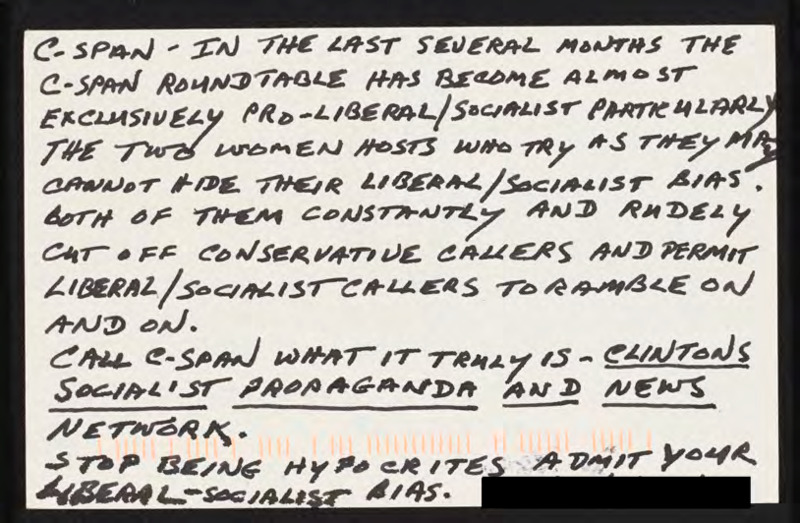 C-SPAN - IN THE LAST SEVERAL MONTHS THE
C-SPAN ROUNDTABLE HAS BECOME ALMOST
EXCLUSIVELY PRO-LIBERAL/SOCIALIST PARTICULARLY
THE TWO WOMEN HOSTS WHO TRY AS THEY MAY
CANNOT HIDE THEIR LIBERAL/SOCIALIST BIAS.
BOTH OF THEM CONSTANTLY AND RUDELY
CUT OFF CONSERVATIVE CALLERS AND PERMIT
LIBERAL/SOCIALIST CALLERS TO RAMBLE ON
AND ON.
CALL C-SPAN WHAT IT TRULY IS - CLINTONS
SOCIALIST PROPAGANDA AND NEWS
NETWORK.
STOP BEING HYPOCRITES ADMIT YOUR
LIBERAL-SOCIALIST BIAS.